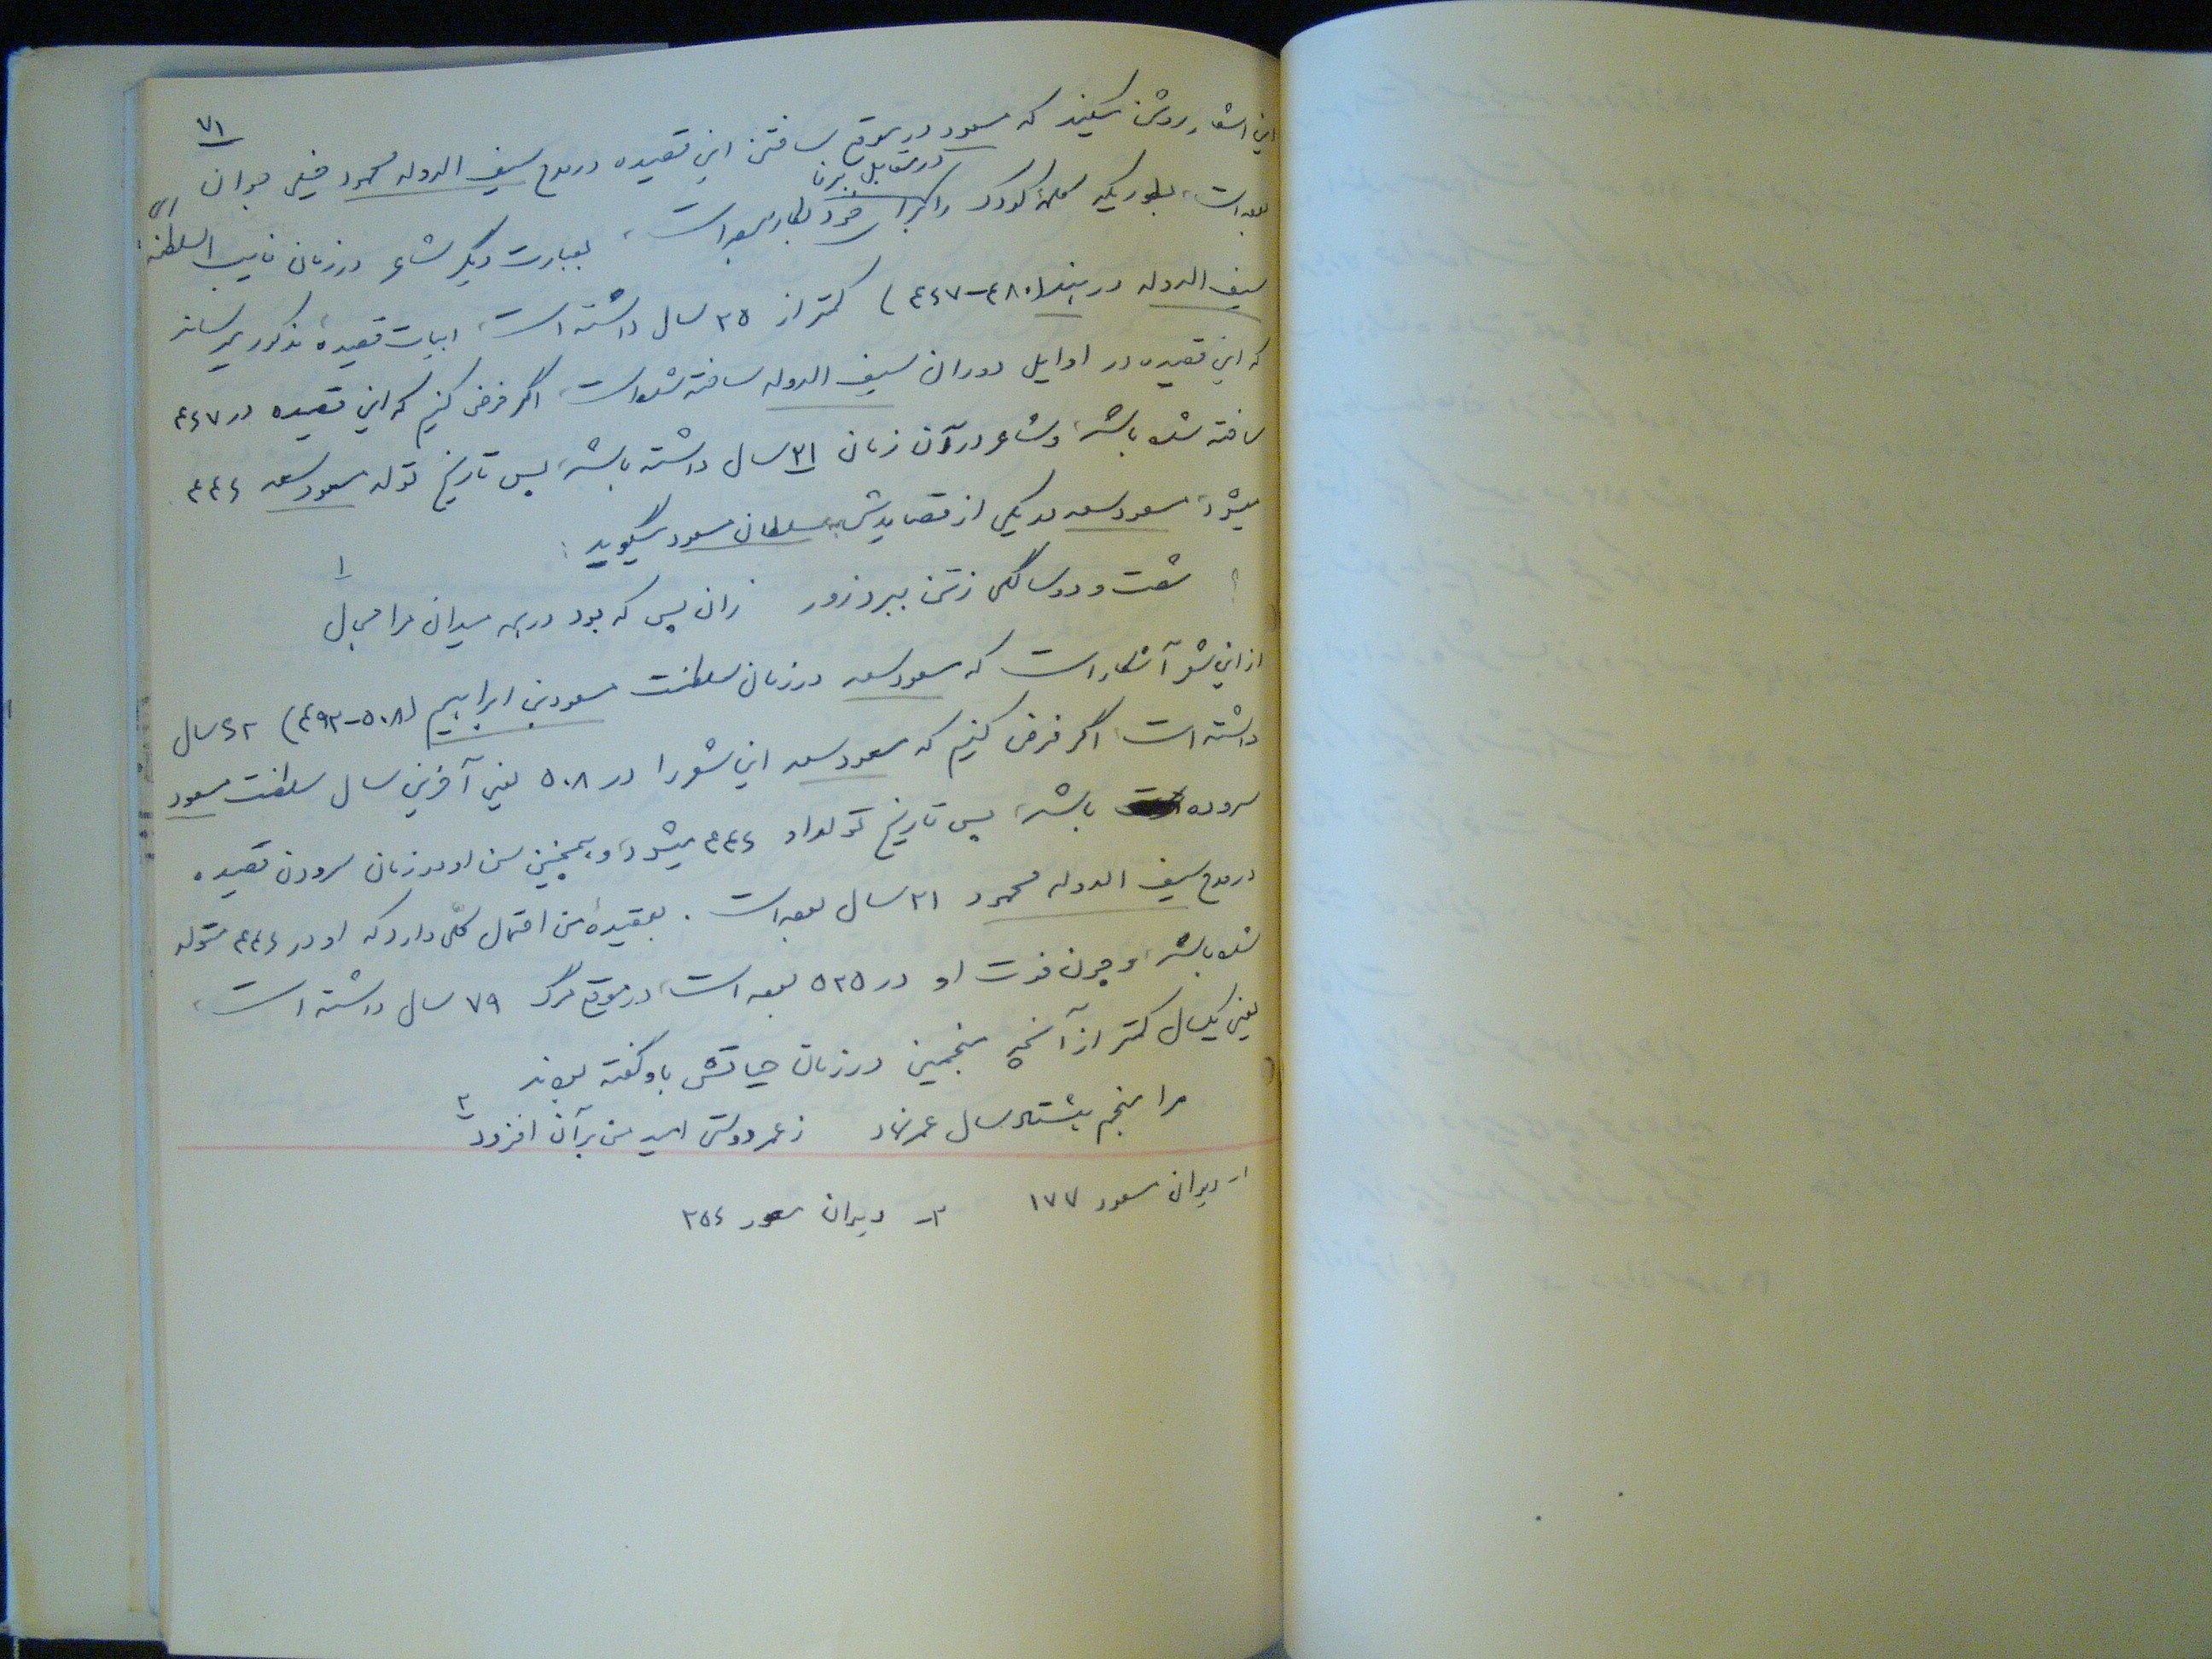 ۷۱
این اشعار روشن میکند که مسعود در موقع ساختن این قصیده در مدح سیف الدوله محمود خیلی جوان
در مقابل برنا
بوده است، بطوریکه کلمهٔ کودک را برای خود بکار برده است، بعبارت دیگر شاعر در زمان نایب السلطنه ای
سیف الدوله در هند (۴۸۰-۴۶۷) کمتر از ۲۵ سال داشته است، ابیات قصیدهٔ مذکور میرساند
که این قصیده در اوایل دوران سیف الدوله ساخته شده است، اگر فرض کنیم که این قصیده در ۴۶۷
ساخته شده باشد، و شاعر در آن زمان ۲۱ سال داشته باشد، پس تاریخ تولد مسعود سعد ۴۴۶
میشود، مسعود سعد در یکی از قصایدش به سلطان مسعود میگوید:
شصت و دو سالگی ز تن ببرد زور زان پس که بود در همه میدان مرا مجال ۱
از این شعر آشکار است که مسعود سعد در زمان سلطنت مسعود بن ابراهیم (۵۰۸-۴۹۲) ۶۲ سال
داشته است، اگر فرض کنیم که مسعود سعد این شعر را در ۵۰۸ یعنی آخرین سال سلطنت مسعود
سروده باشد، پس تاریخ تولد او ۴۴۶ میشود، و همچنین سن او در زمان سرودن قصیده
در مدح سیف الدوله محمود ۲۱ سال بوده است. بعقیدهٔ من احتمال کلّی دارد که او در ۴۴۶ متولد
شده باشد، و چون فوت او در ۵۲۵ بوده است، در موقع مرگ ۷۹ سال داشته است،
یعنی یکسال کمتر از آنچه منجمین در زمان حیاتش باو گفته بودند
مرا منجم هشتاد سال عمر نهاد ز عمر دوستی امید من بر آن افزود ۲
۱- دیوان مسعود ۱۷۷ ۲- دیوان مسعود ۲۵۶